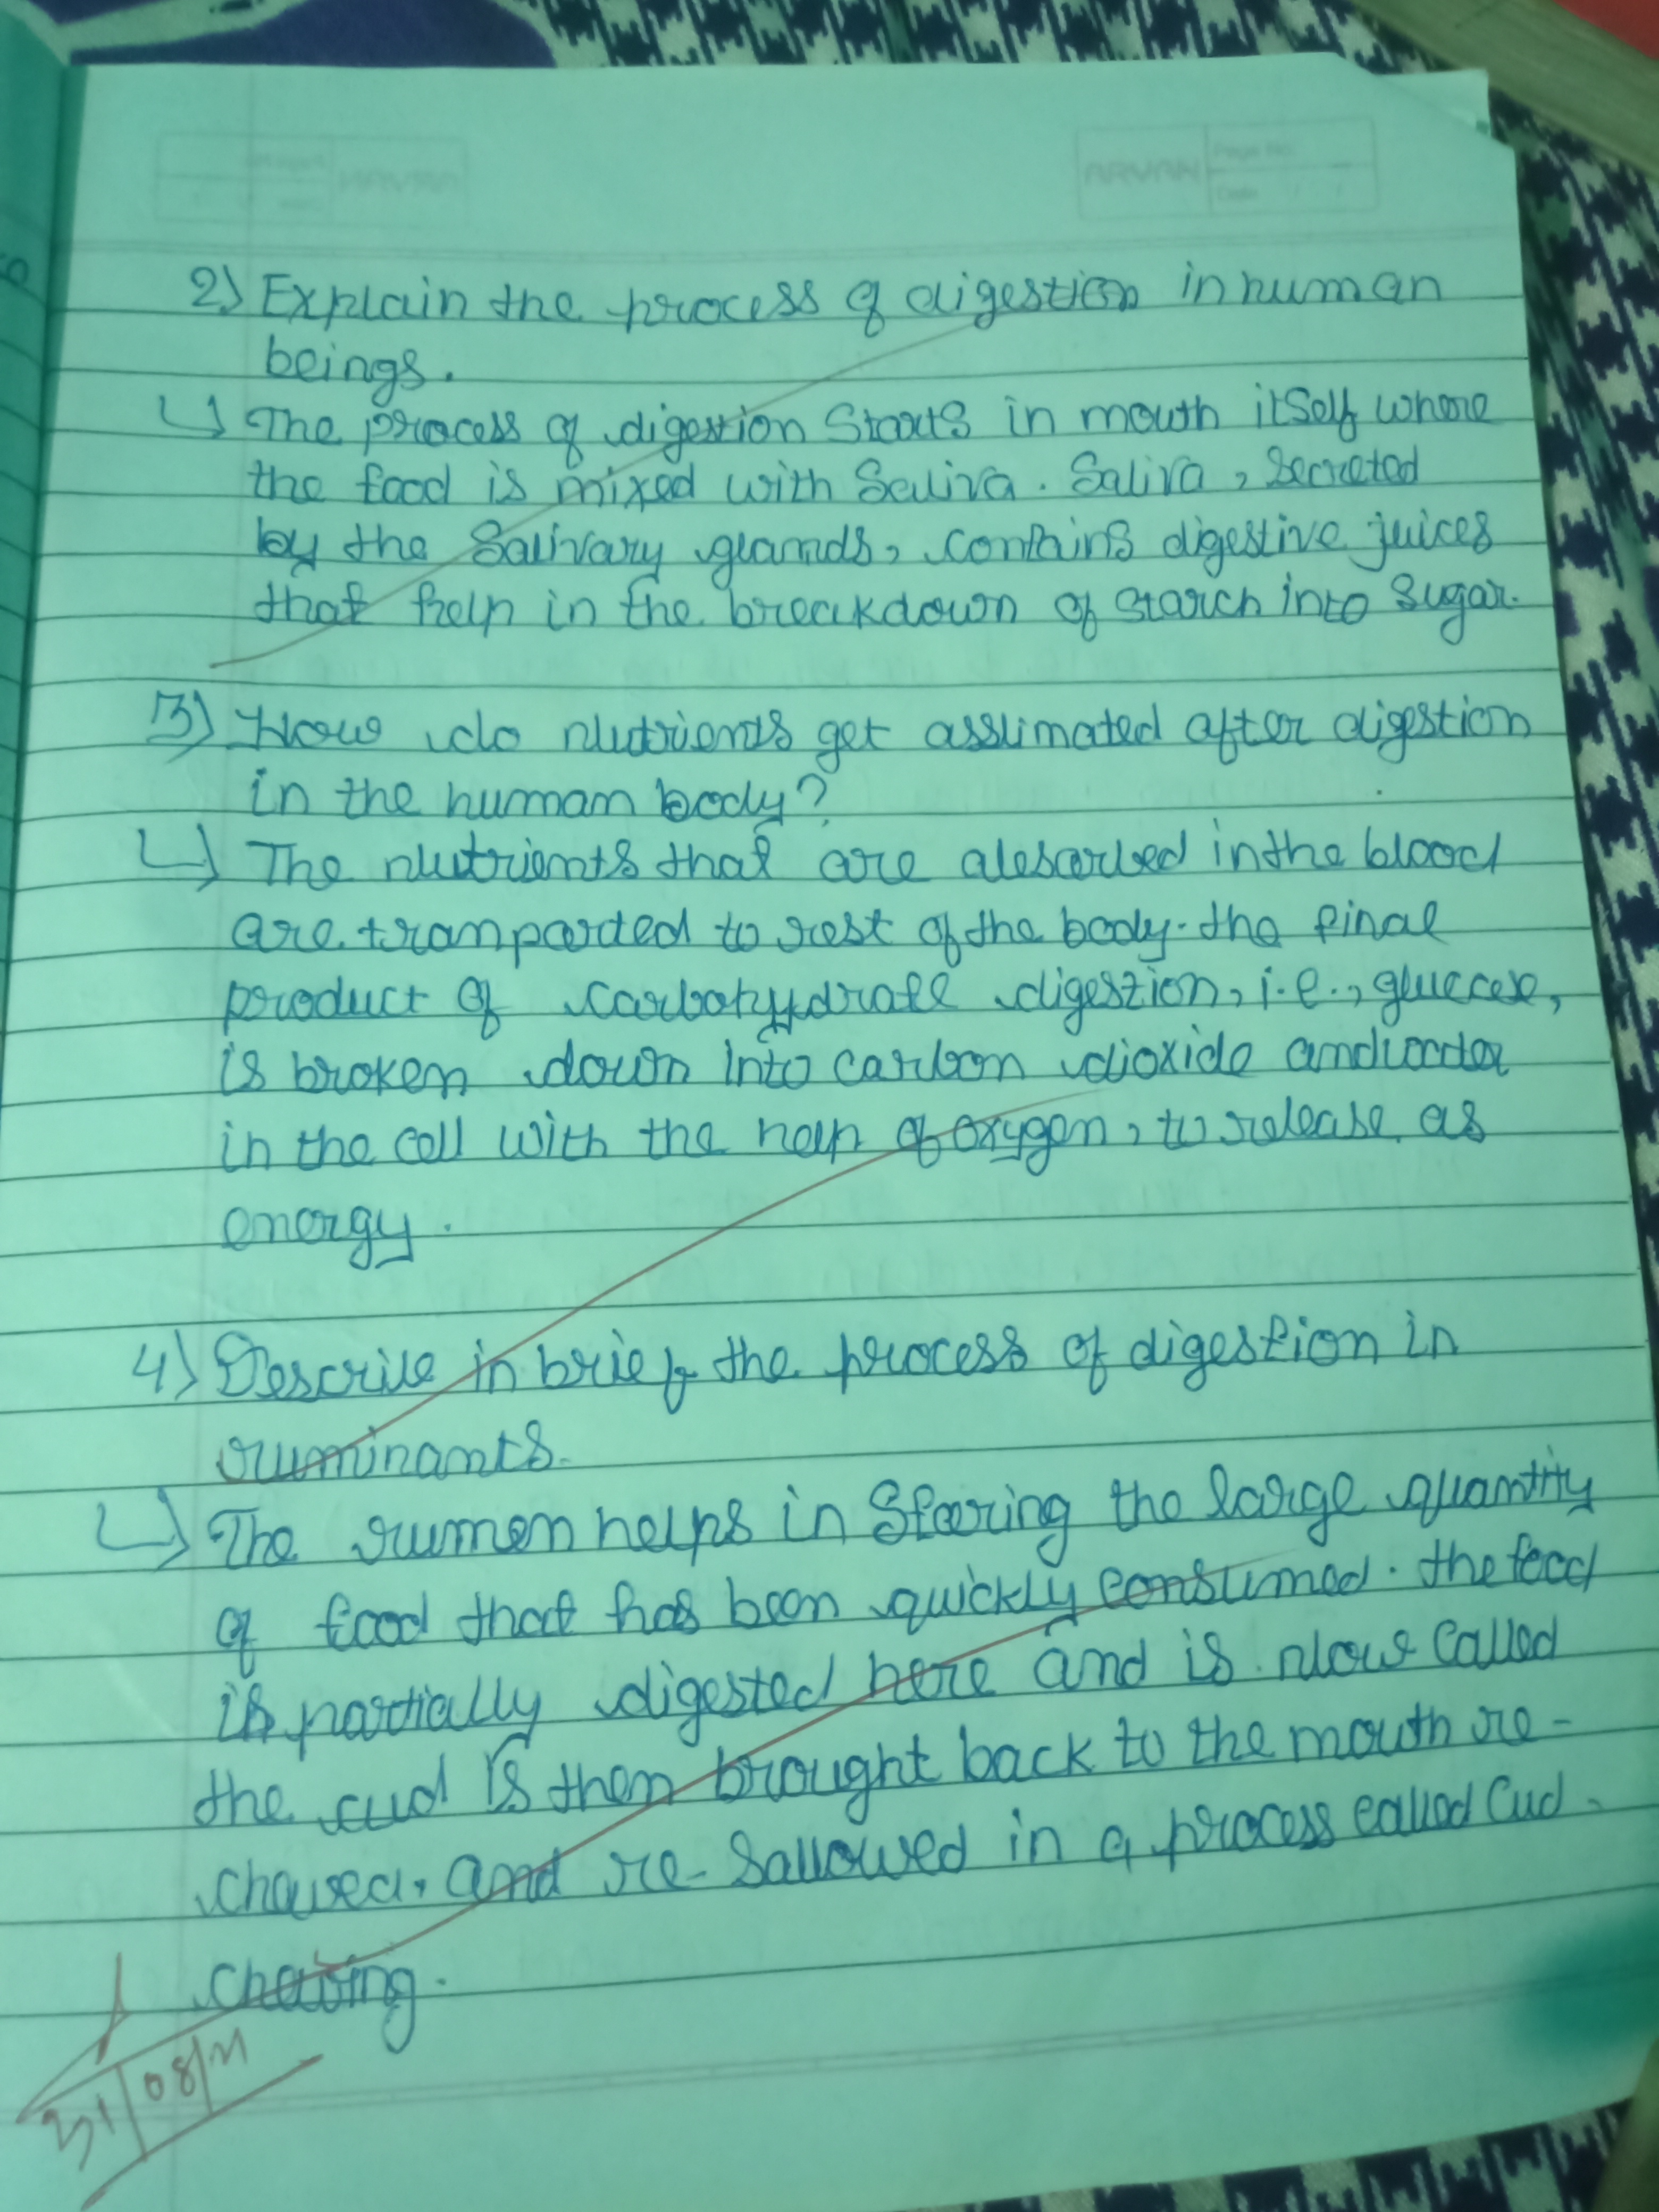 ARVAN Page No.
Date / /
2) Explain the process of digestion in human
beings.
↳ The process of digestion starts in mouth itself where
the food is mixed with Saliva. Saliva, secreted
by the Salivary glands, contains digestive juices
that help in the breakdown of starch into sugar.
3) How do nutrients get asslimated after digestion
in the human body?
↳ The nutrients that are abscarbed in the blood
are tranported to rest of the body. the final
product of carbohydrate digestion, i.e., gluccose,
is broken down into carbon dioxide and water
in the cell with the help of oxygen, to release as
energy.
4) Describe in brief the process of digestion in
ruminants.
↳ The rumen helps in storing the large quantity
of food that has been quickly consumed. the food
is partially digested here and is now called
the cud is then brought back to the mouth re-
chewed, and re-sallowed in a process called Cud-
chewing.
31/08/21